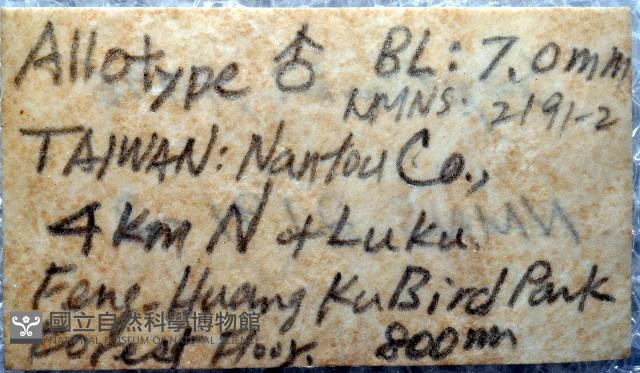 Allotype ♂ BL: 7.0mm
NMNS. 2191-2
TAIWAN: Nantou Co.,
4 km N of Luku
Feng-Huang Ku Bird Park
Forest floor. 800 mm
國立自然科學博物館
NATIONAL MUSEUM OF NATURAL SCIENCE